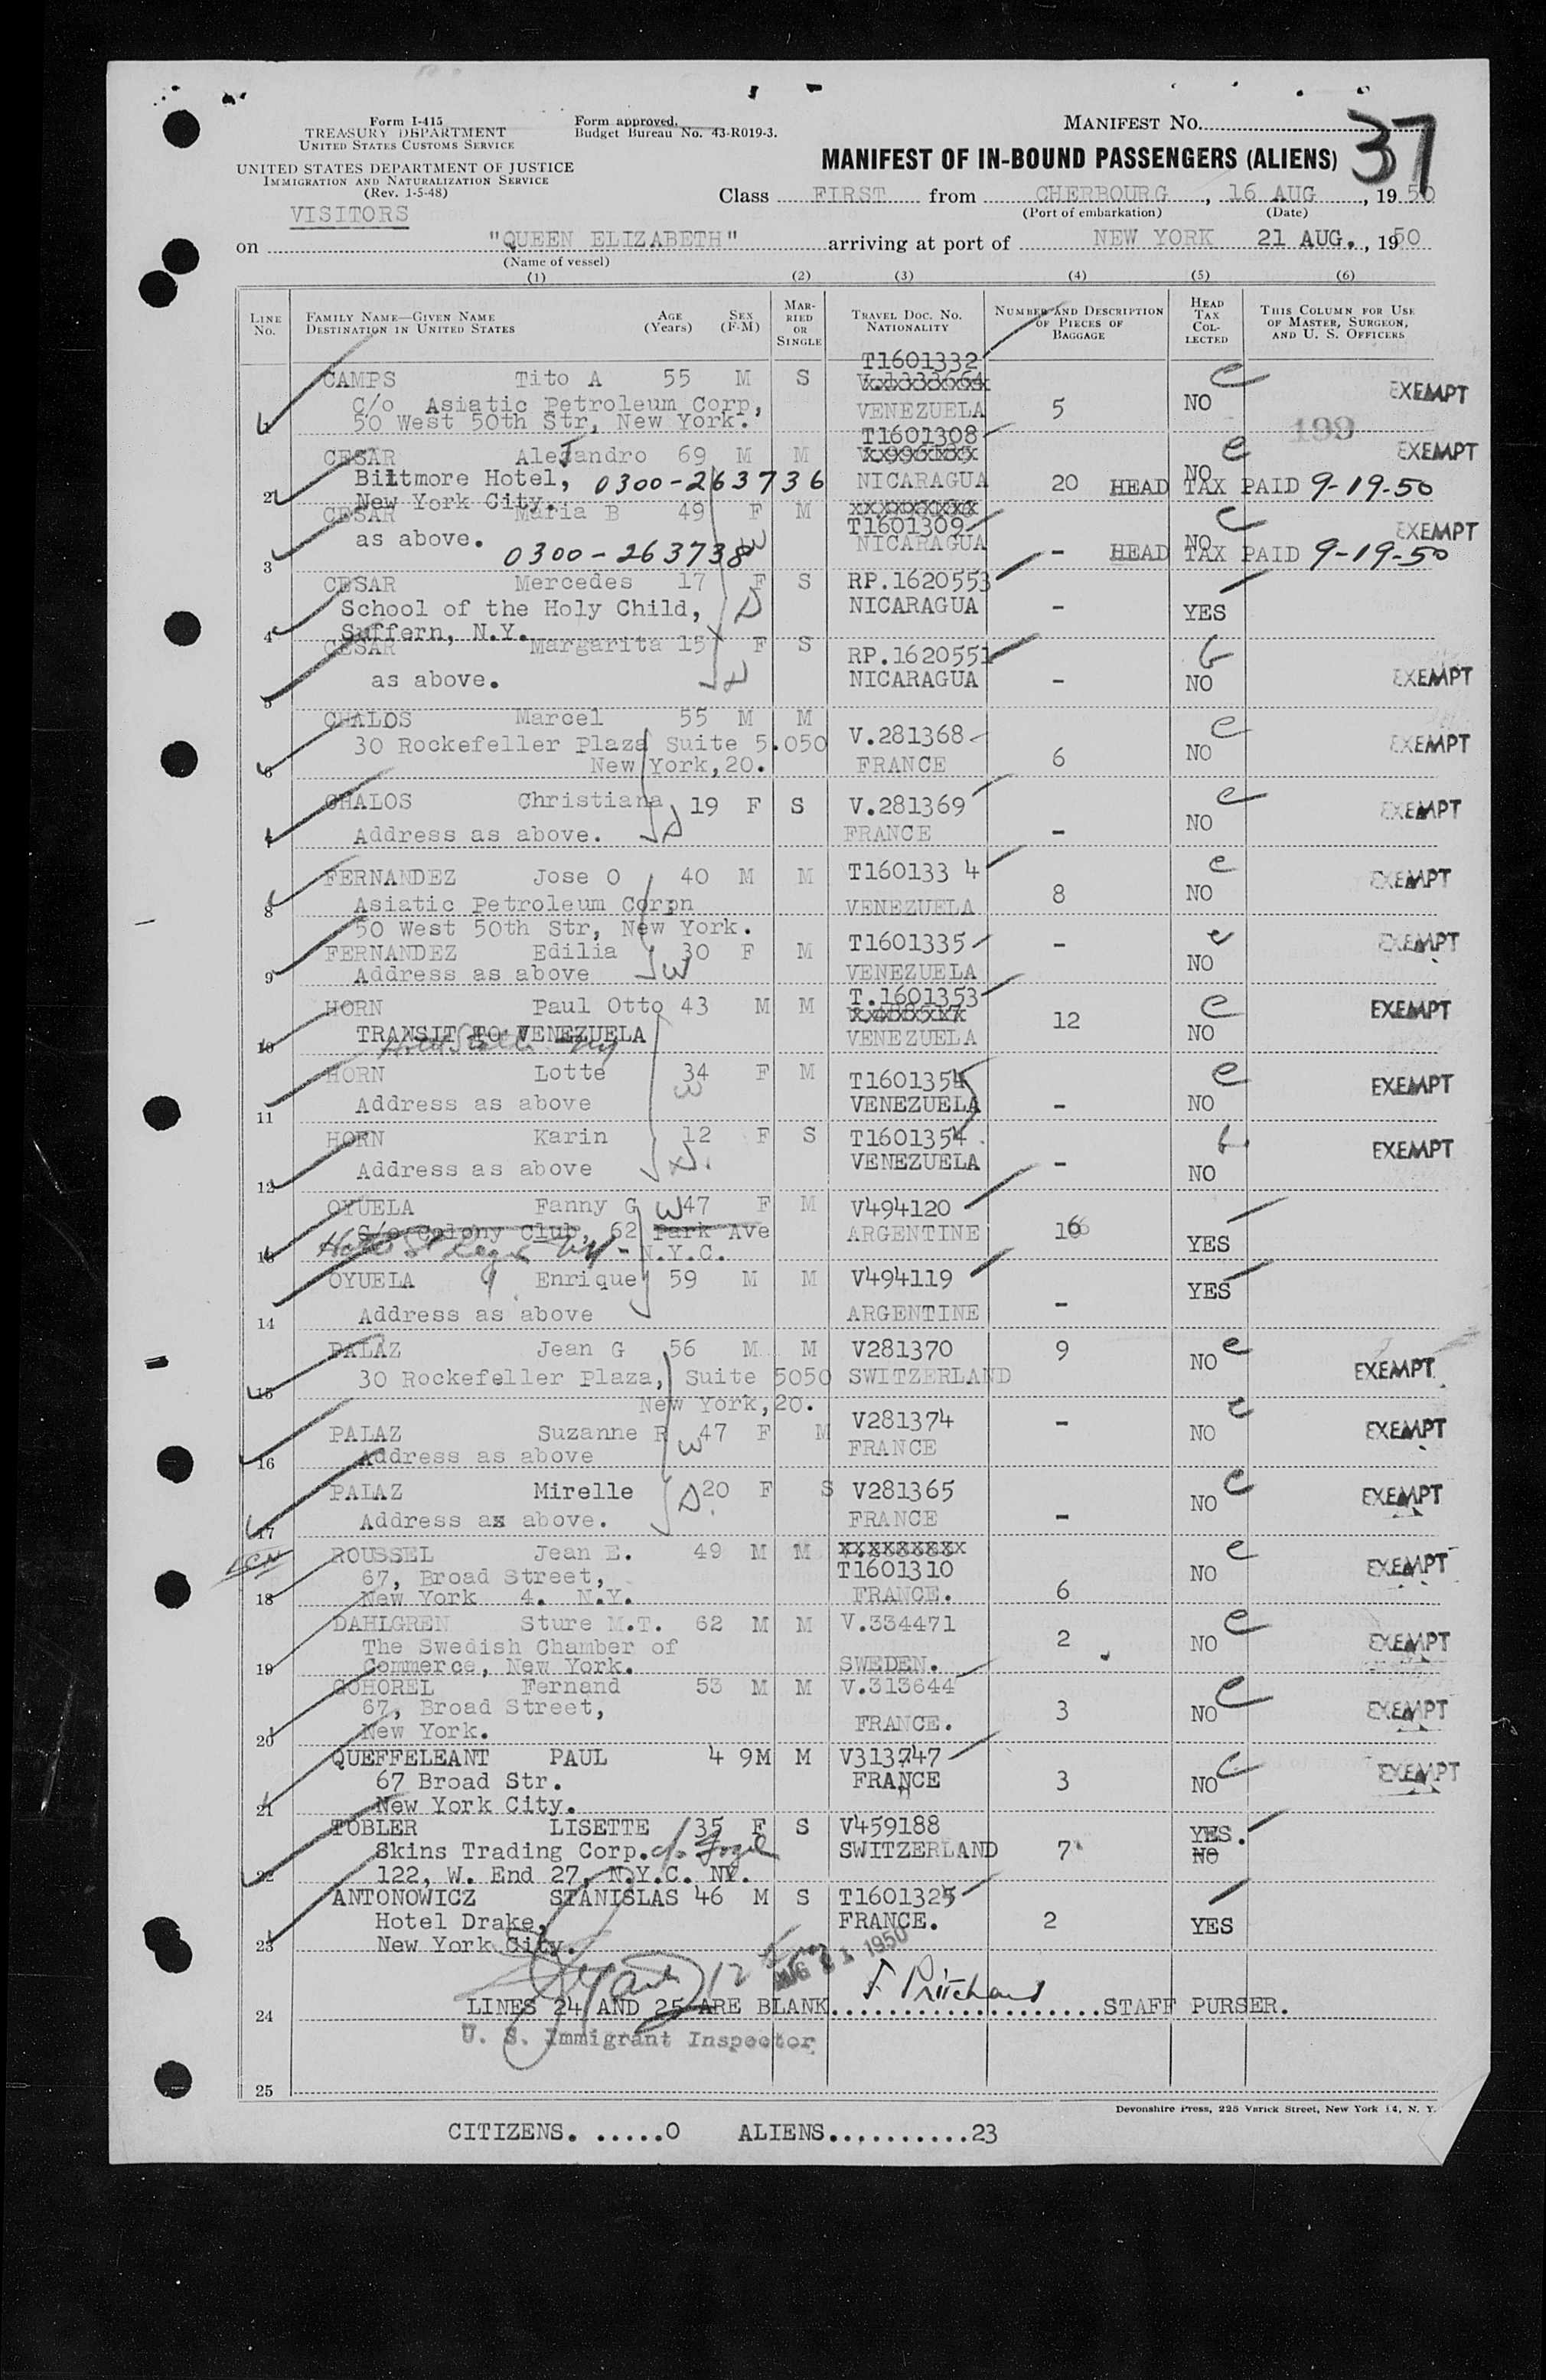 Form I-415
TREASURY DEPARTMENT
UNITED STATES CUSTOMS SERVICE
Form approved.
Budget Bureau No. 43-R019-3.
MANIFEST NO.
37
UNITED STATES DEPARTMENT OF JUSTICE
IMMIGRATION AND NATURALIZATION SERVICE
(Rev. 1-5-48)
MANIFEST OF IN-BOUND PASSENGERS (ALIENS)
VISITORS
Class FIRST from CHERBOURG, 16 AUG, 1950
(Port of embarkation) (Date)
on "QUEEN ELIZABETH" arriving at port of NEW YORK 21 AUG., 1950
(Name of vessel)
(1) (2) (3) (4) (5) (6)
LINE No. FAMILY NAME—GIVEN NAME DESTINATION IN UNITED STATES AGE (Years) SEX (F-M) MARRIED OR SINGLE TRAVEL DOC. NO. NATIONALITY NUMBER AND DESCRIPTION OF PIECES OF BAGGAGE HEAD TAX COLLECTED THIS COLUMN FOR USE OF MASTER, SURGEON, AND U. S. OFFICERS
T1601332
CAMPS Tito A 55 M S
C/o Asiatic Petroleum Corp, VENEZUELA 5 NO EXEMPT
50 West 50th Str, New York.
199
T1601308
CESAR Alejandro 69 M M EXEMPT
2 Biltmore Hotel, 0300-263736 NICARAGUA 20 NO HEAD TAX PAID 9-19-50
New York City.
CESAR Maria B 49 F M T1601309 EXEMPT
3 as above. 0300-263738 NICARAGUA - NO HEAD TAX PAID 9-19-50
CESAR Mercedes 17 F S RP.1620553
School of the Holy Child, NICARAGUA - YES
4 Suffern, N.Y.
CESAR Margarita 15 F S RP.1620551
5 as above. NICARAGUA - NO EXEMPT
CHALOS Marcel 55 M M V.281368
30 Rockefeller Plaza Suite 5.050 NO EXEMPT
6 New York,20. FRANCE 6
CHALOS Christiana 19 F S V.281369 EXEMPT
Address as above. FRANCE - NO
FERNANDEZ Jose O 40 M M T160133 4 EXEMPT
8 Asiatic Petroleum Corpn VENEZUELA 8 NO
50 West 50th Str, New York.
FERNANDEZ Edilia 30 F M T1601335 - EXEMPT
9 Address as above VENEZUELA NO
HORN Paul Otto 43 M M T.1601353 EXEMPT
10 TRANSIT TO VENEZUELA VENEZUELA 12 NO
HORN Lotte 34 F M T1601354 EXEMPT
11 Address as above VENEZUELA - NO
HORN Karin 12 F S T1601354 EXEMPT
12 Address as above VENEZUELA - NO
OYUELA Fanny G 47 F M V494120
C/o Colony Club, 62 Park Ave ARGENTINE 16 YES
13 N.Y.C.
OYUELA Enrique 59 M M V494119 YES
14 Address as above ARGENTINE -
PALAZ Jean G 56 M M V281370 9 NO EXEMPT
15 30 Rockefeller Plaza, Suite 5050 SWITZERLAND
New York,20.
PALAZ Suzanne R 47 F M V281374 - NO EXEMPT
16 Address as above FRANCE
PALAZ Mirelle 20 F S V281365 NO EXEMPT
17 Address as above. FRANCE -
ROUSSEL Jean E. 49 M M T1601310 NO EXEMPT
67, Broad Street,
18 New York 4. N.Y. FRANCE. 6
DAHLGREN Sture M.T. 62 M M V.334471
The Swedish Chamber of 2 NO EXEMPT
19 Commerce, New York. SWEDEN.
GOHOREL Fernand 53 M M V.313644
67, Broad Street, 3 NO EXEMPT
20 New York. FRANCE.
QUEFFELEANT PAUL 4 9M M V313747
67 Broad Str. FRANCE 3 NO EXEMPT
21 New York City.
TOBLER LISETTE 35 F S V459188 YES.
Skins Trading Corp. SWITZERLAND 7 NO
22 122, W. End 27, N.Y.C. NY.
ANTONOWICZ STANISLAS 46 M S T1601325
Hotel Drake, FRANCE. 2 YES
23 New York City.
AUG 21 1950
F Pritchard
24 LINES 24 AND 25 ARE BLANK....................STAFF PURSER.
U. S. Immigrant Inspector
25
Devonshire Press, 225 Varick Street, New York 14, N. Y.
CITIZENS. .....0 ALIENS..........23